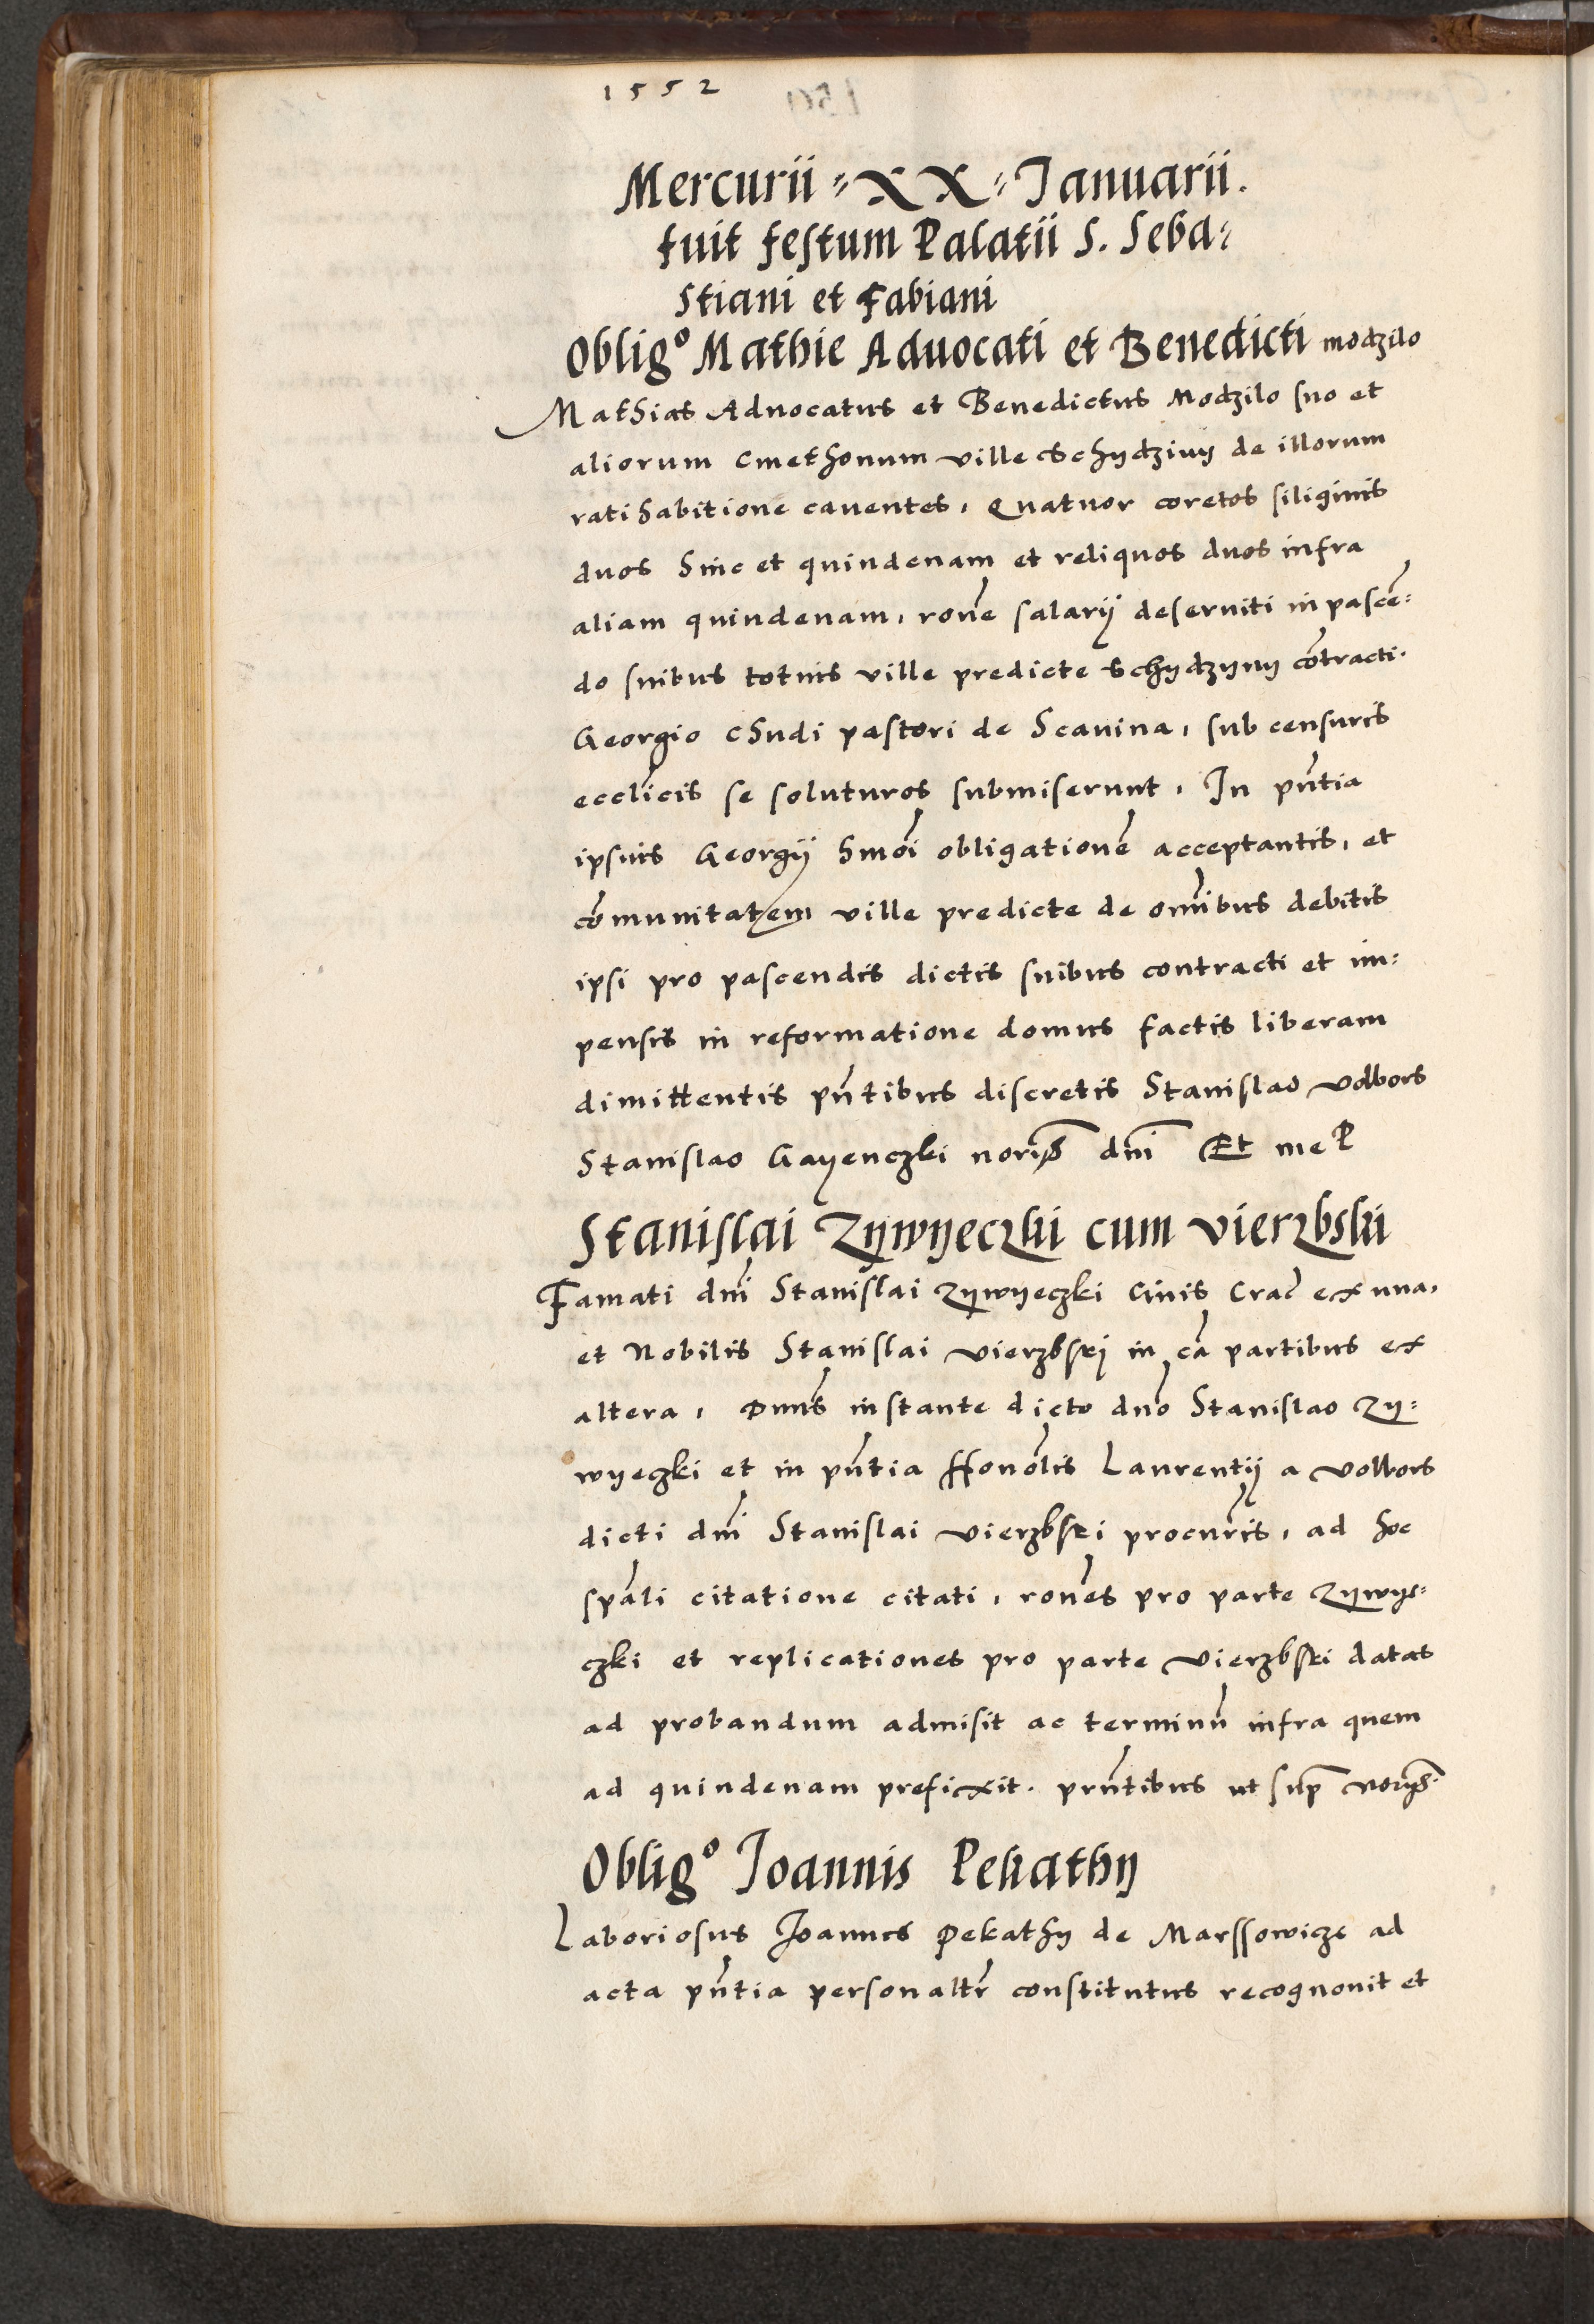 1552
Mercurii XX Januarii.
fuit festum Palatii S. Seba=
stiani et Fabiani
Oblig° Mathie Advocati et Benedicti modzilo
Mathias Advocatus et Benedictus Modzilo suo et
aliorum cmethonum ville Schydziny de illorum
ratihabitione caventes, Quatuor coretos siliginis
duos hinc et quindenam et reliquos duos infra
aliam quindenam, rone salarij deserviti in pasce=
do suibus totius ville predicte Schydzyny contracti.
Georgio Chudi pastori de Scavina, sub censuris
eccl̄icis se soluturos submiserunt, In pn̄tia
ipsius Georgij hmōi obligationē acceptantis, et
cōmunitatem ville predicte de om̄ibus debitis
ipsi pro pascendis dictis suibus contracti et im=
pensis in reformatione domus factis liberam
dimittentis pn̄tibus discretis Stanislao volbors
Stanislao Gayenczki noriis dn̄i Et me P
Stanislai Zywyeczki cum vierzbski
Famati dn̄i Stanislai Zywyeczki Civis Crac̄ ex una,
et Nobilis Stanislai vierzbskj in cā partibus ex
altera, Dnus instante dicto dn̄o Stanislao Zy=
wyeczki et in pn̄tia Honōlis Laurentij a volbors
dicti dn̄i Stanislai vierzbski procur̄is, ad hoc
spāli citatione citati, rones pro parte Zywye=
czki et replicationes pro parte vierzbski datas
ad probandum admisit ac terminū infra quem
ad quindenam preficxit. prn̄tibus ut sup̄ noriis.
Oblig° Joannis Pekathy
Laboriosus Joannes Pekathy de Marssowicze ad
acta pn̄tia personaltr̄ constitutus recognovit et